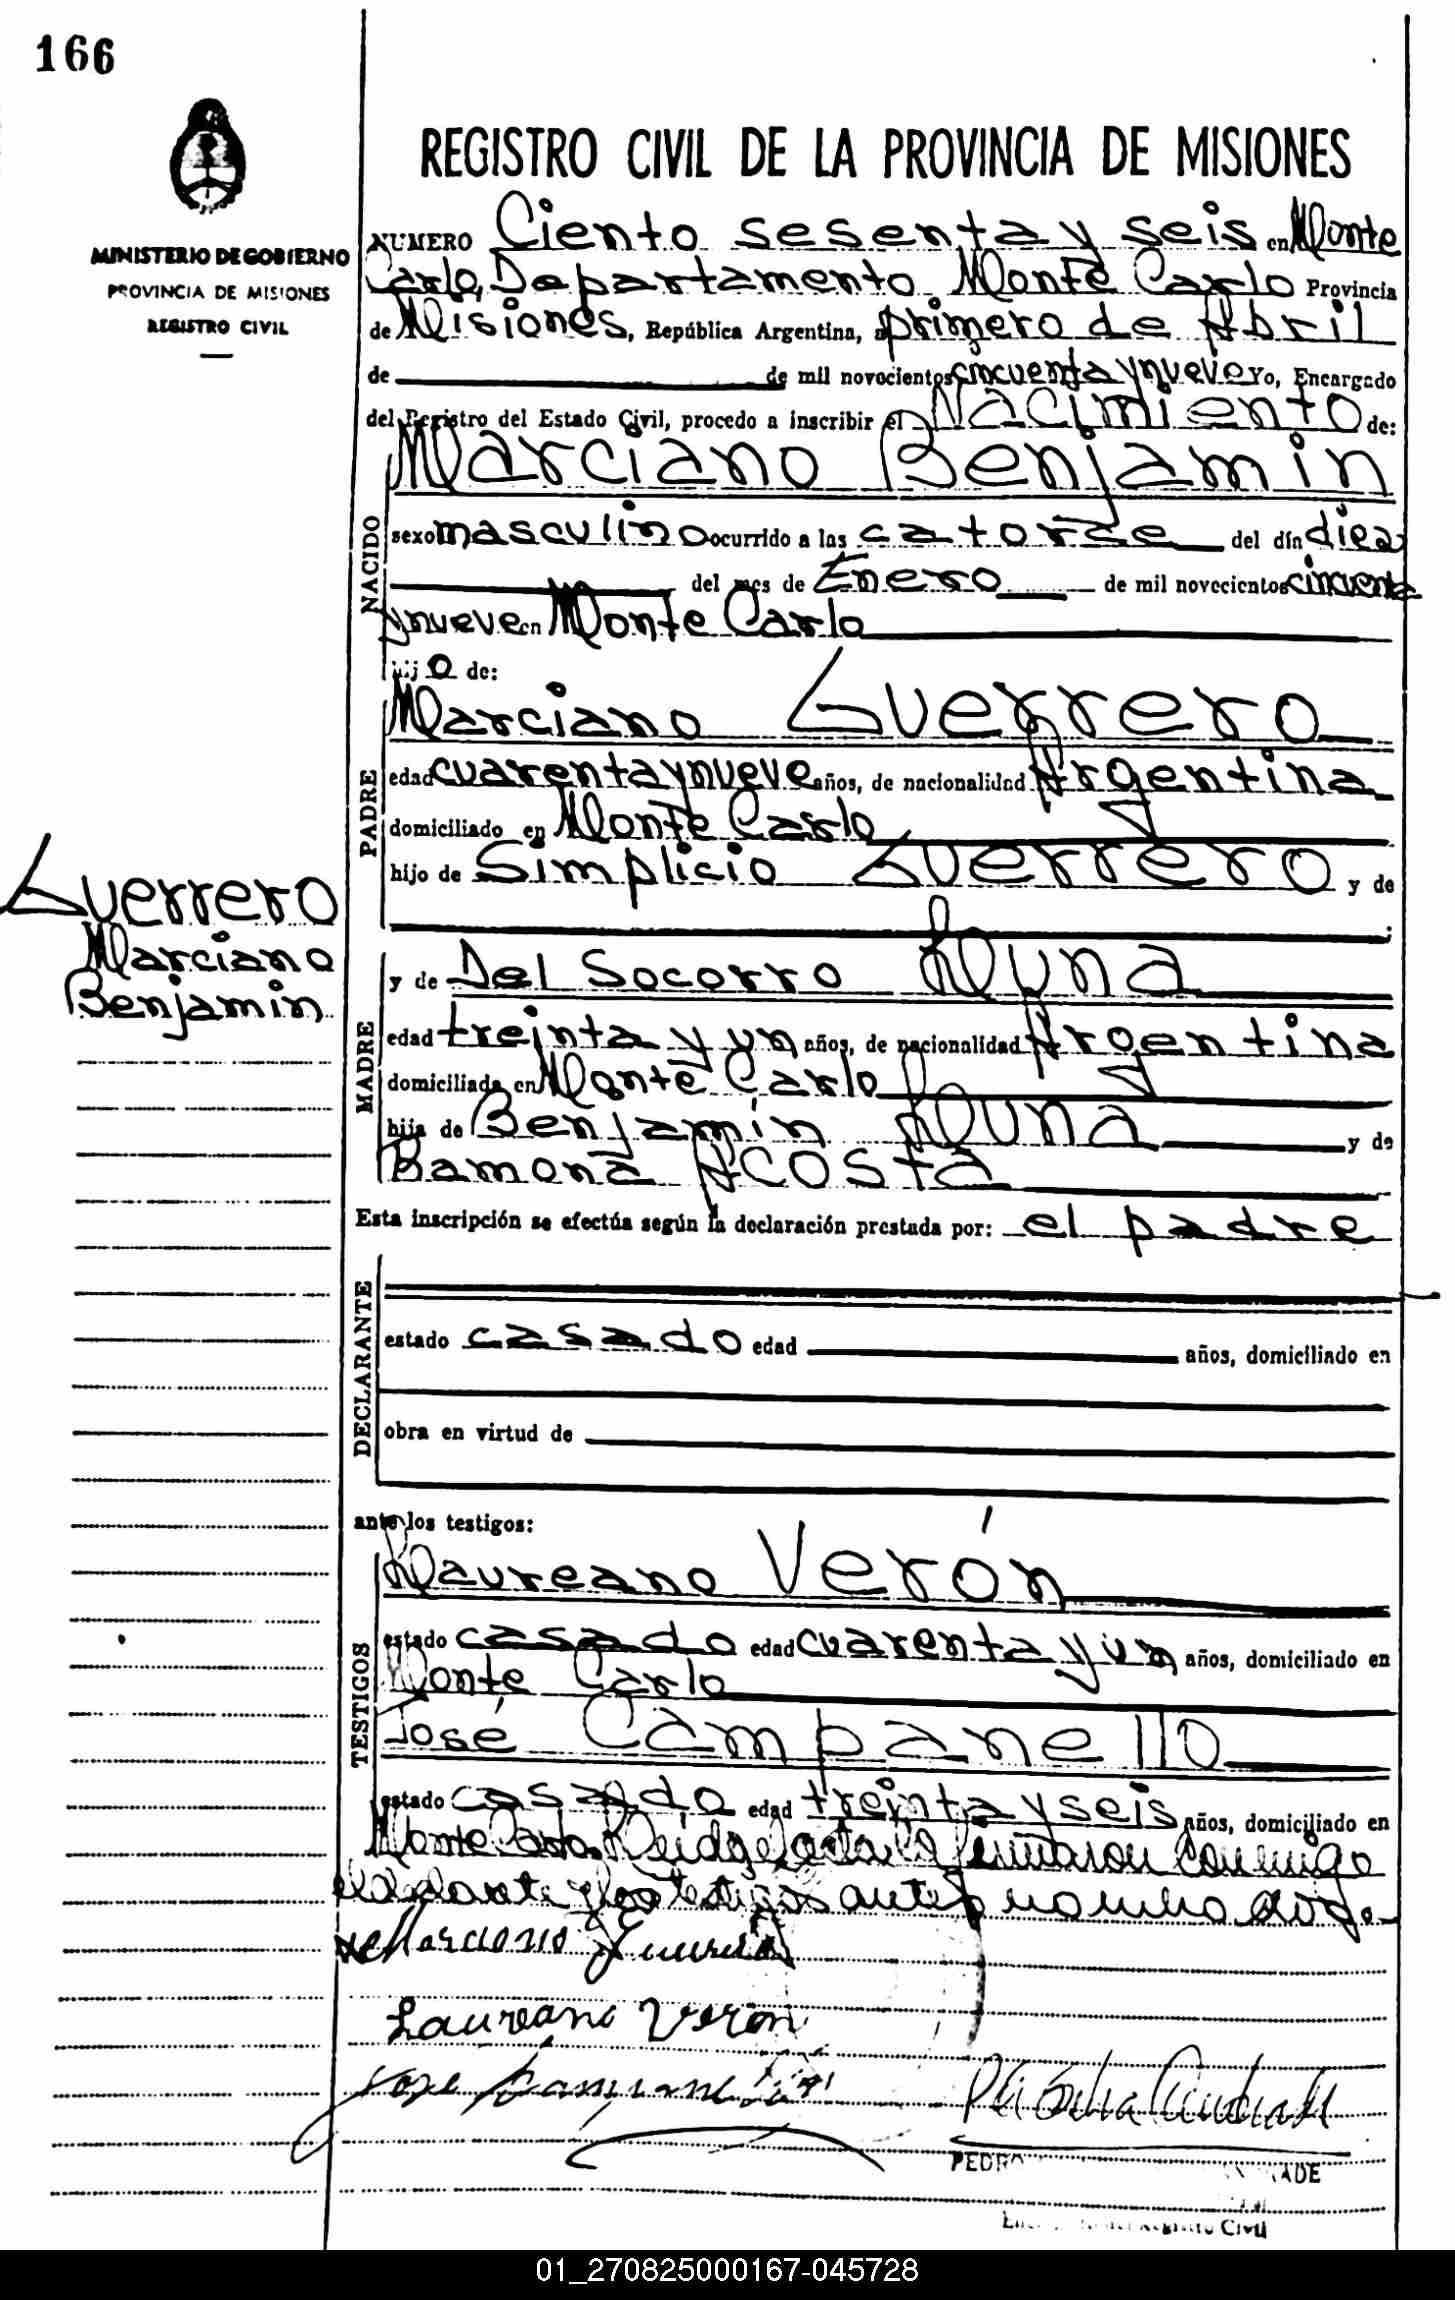 166
REGISTRO CIVIL DE LA PROVINCIA DE MISIONES
MINISTERIO DE GOBIERNO
PROVINCIA DE MISIONES
REGISTRO CIVIL
NUMERO Ciento sesenta y seis en Monte
Carlo, Departamento Monte Carlo Provincia
de Misiones, República Argentina, a primero de Abril
de de mil novecientos cincuenta y nueve Yo, Encargado
del Registro del Estado Civil, procedo a inscribir el Nacimiento de:
NACIDO
Marciano Benjamin
sexo masculino ocurrido a las catorze del día diez
del mes de Enero de mil novecientos cincuenta
y nueve en Monte Carlo
hijo de:
PADRE
Marciano Guerrero
edad cuarenta y nueve años, de nacionalidad Argentina
domiciliado en Monte Carlo
hijo de Simplicio Guerrero y de
Guerrero
Marciano
Benjamin
MADRE
y de Del Socorro Luna
edad treinta y un años, de nacionalidad Argentina
domiciliada en Monte Carlo
hija de Benjamín Luna y de
Ramona Acosta
Esta inscripción se efectúa según la declaración prestada por: el padre
DECLARANTE
estado casado edad años, domiciliado en
obra en virtud de
ante los testigos:
TESTIGOS
Laureano Verón
estado casado edad cuarenta y un años, domiciliado en
Monte Carlo
José Campanello
estado casado edad treinta y seis años, domiciliado en
Monte Carlo. Leida el acta la firmaron conmigo
el declarante y los testigos ante
Marciano Guerrero
Laureano Veron
Jose
PEDRO ADE
Registro Civil
01_270825000167-045728